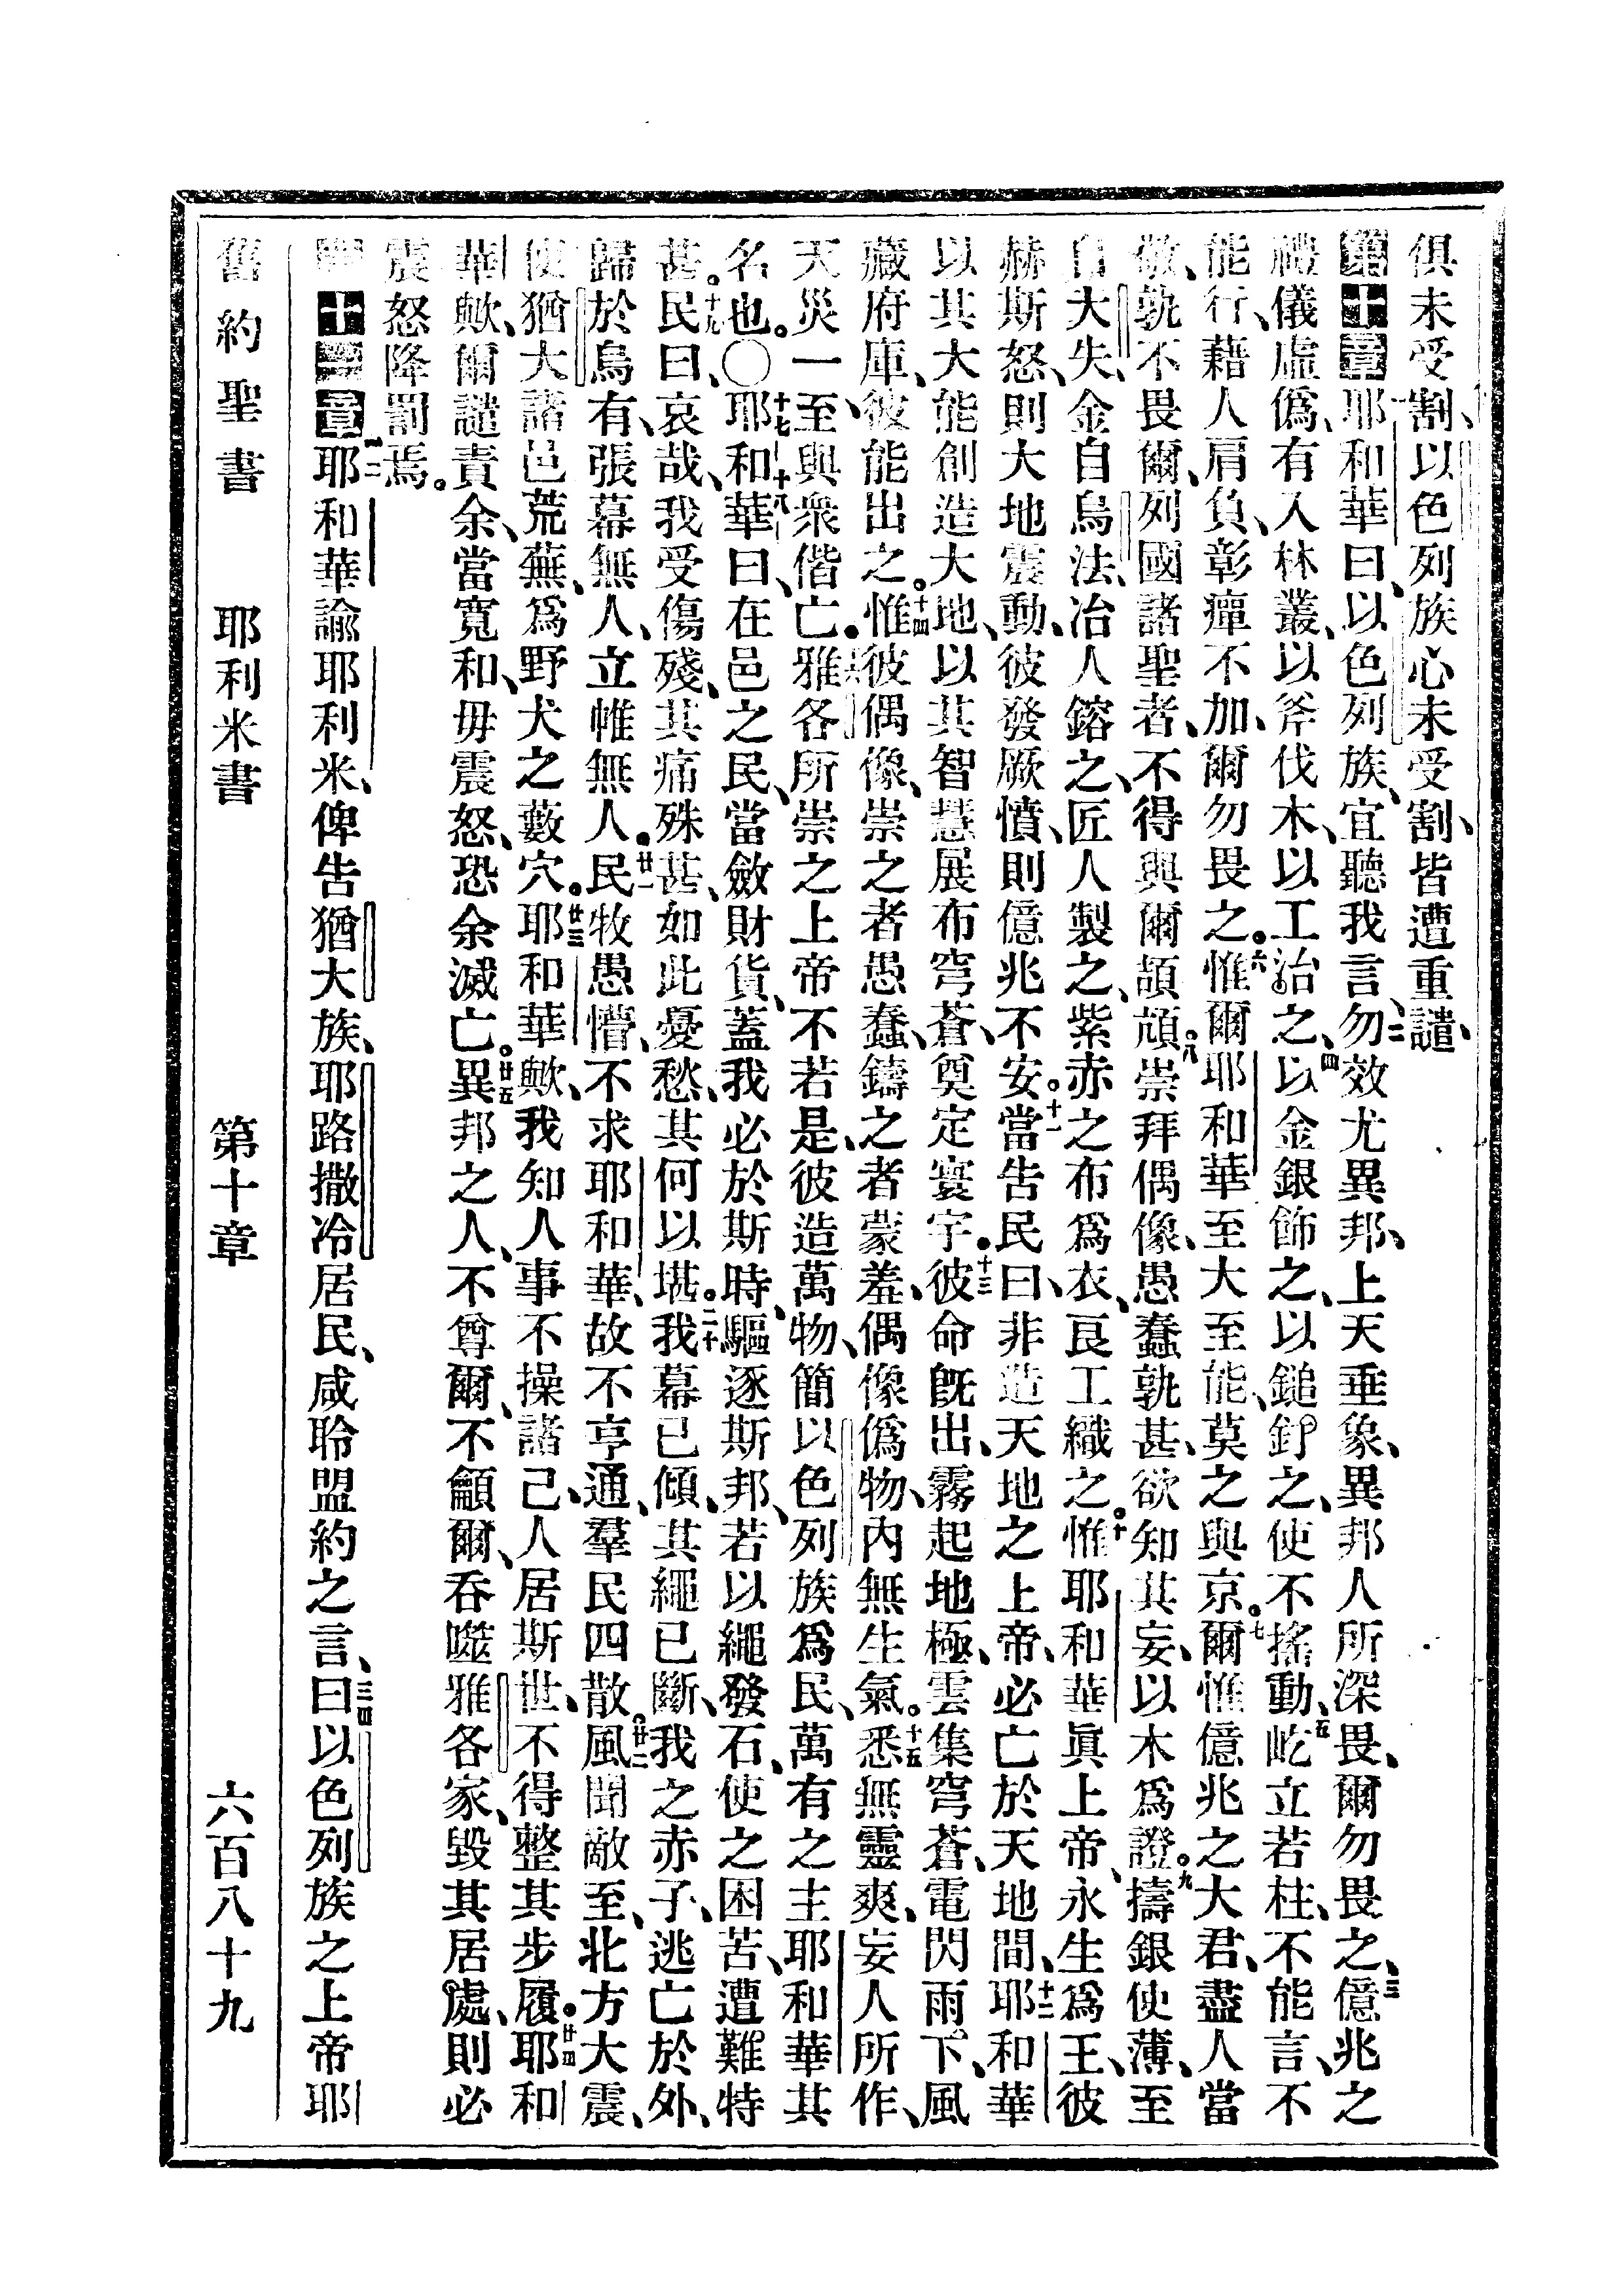 俱未受割、以色列族心未受割、皆遭重譴、
第十章一耶和華曰、以色列族、宜聽我言、二勿效尤異邦、上天垂象、異邦人所深畏、爾勿畏之、三億兆之
禮儀虛僞、有入林叢、以斧伐木、以工治之、四以金銀飾之、以鎚釘之、使不搖動、五屹立若柱、不能言、不
能行、藉人肩負、彰癉不加、爾勿畏之。六惟爾耶和華至大至能、莫之與京。七爾惟億兆之大君、盡人當
敬、孰不畏爾、列國諸聖者、不得與爾頡頏。八崇拜偶像、愚蠢孰甚、欲知其妄、以木爲證。九擣銀使薄、至
自大失、金自烏法、冶人鎔之、匠人製之、紫赤之布爲衣、良工織之。十惟耶和華眞上帝、永生爲王、彼
赫斯怒、則大地震動、彼發厥憤、則億兆不安。十一當告民曰、非造天地之上帝、必亡於天地間、十二耶和華
以其大能創造大地、以其智慧展布穹蒼、奠定寰宇。十三彼命旣出、霧起地極、雲集穹蒼、電閃雨下、風
藏府庫、彼能出之。十四惟彼偶像、崇之者愚蠢、鑄之者蒙羞、偶像僞物、內無生氣。十五悉無靈爽、妄人所作、
天災一至、與衆偕亡。十六雅各所崇之上帝不若是、彼造萬物、簡以色列族爲民、萬有之主耶和華其
名也。〇十七十八耶和華曰、在邑之民、當斂財貨、蓋我必於斯時、驅逐斯邦、若以繩發石、使之困苦、遭難特
甚。十九民曰、哀哉、我受傷殘、其痛殊甚、如此憂愁、其何以堪。二十我幕已傾、其繩已斷、我之赤子、逃亡於外、
歸於烏有、張幕無人、立帷無人。廿一民牧愚懵、不求耶和華、故不亨通、羣民四散。廿二風聞敵至、北方大震、
使猶大諸邑荒蕪、爲野犬之藪穴。廿三耶和華歟、我知人事不操諸己、人居斯世、不得整其步履。廿四耶和
華歟、爾譴責余、當寬和、毋震怒、恐余滅亡。廿五異邦之人、不尊爾、不龥爾、吞噬雅各家、毀其居處、則必
震怒降罰焉。
第十一章一二耶和華諭耶利米、俾告猶大族、耶路撒冷居民、咸聆盟約之言、三四曰以色列族之上帝耶
舊約聖書 耶利米書 第十章 六百八十九